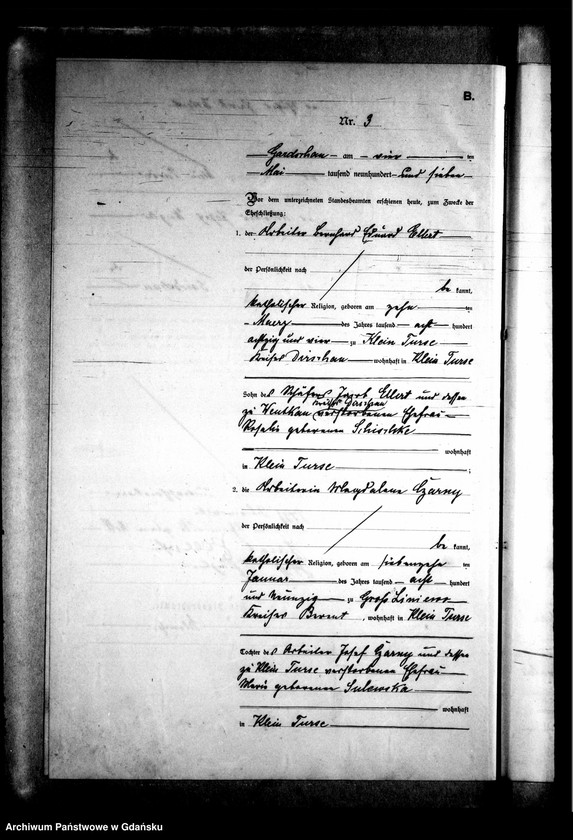 B.
Nr. 3
am vier ten
Mai tausend neunhundert und sieben
Vor dem unterzeichneten Standesbeamten erschienen heute, zum Zwecke der
Eheschließung:
1. der Arbeiter Bernhard Eduard Ellert
der Persönlichkeit nach
be kannt,
katholischer Religion, geboren am zehn ten
Maerz des Jahres tausend acht hundert
achtzig und vier zu Klein Turse
Kreises Dirschau wohnhaft in Klein Turse
Sohn des Schäfers Jacob Ellert und dessen
Kreises Dirschau
zu verstorbenen Ehefrau
Rosalie geborenen
wohnhaft
in Klein Turse ;
2. die Arbeiterin Magdalena Czarny
der Persönlichkeit nach
be kannt,
katholischer Religion, geboren am siebenzehn ten
Januar des Jahres tausend acht hundert
und Neunzig zu Groß Liniewo
Kreises Berent , wohnhaft in Klein Turse
Tochter des Arbeiter Josef Czarny und dessen
zu Klein Turse verstorbenen Ehefrau
Marie geborenen Sulewska
wohnhaft
in Klein Turse
Archiwum Państwowe w Gdańsku